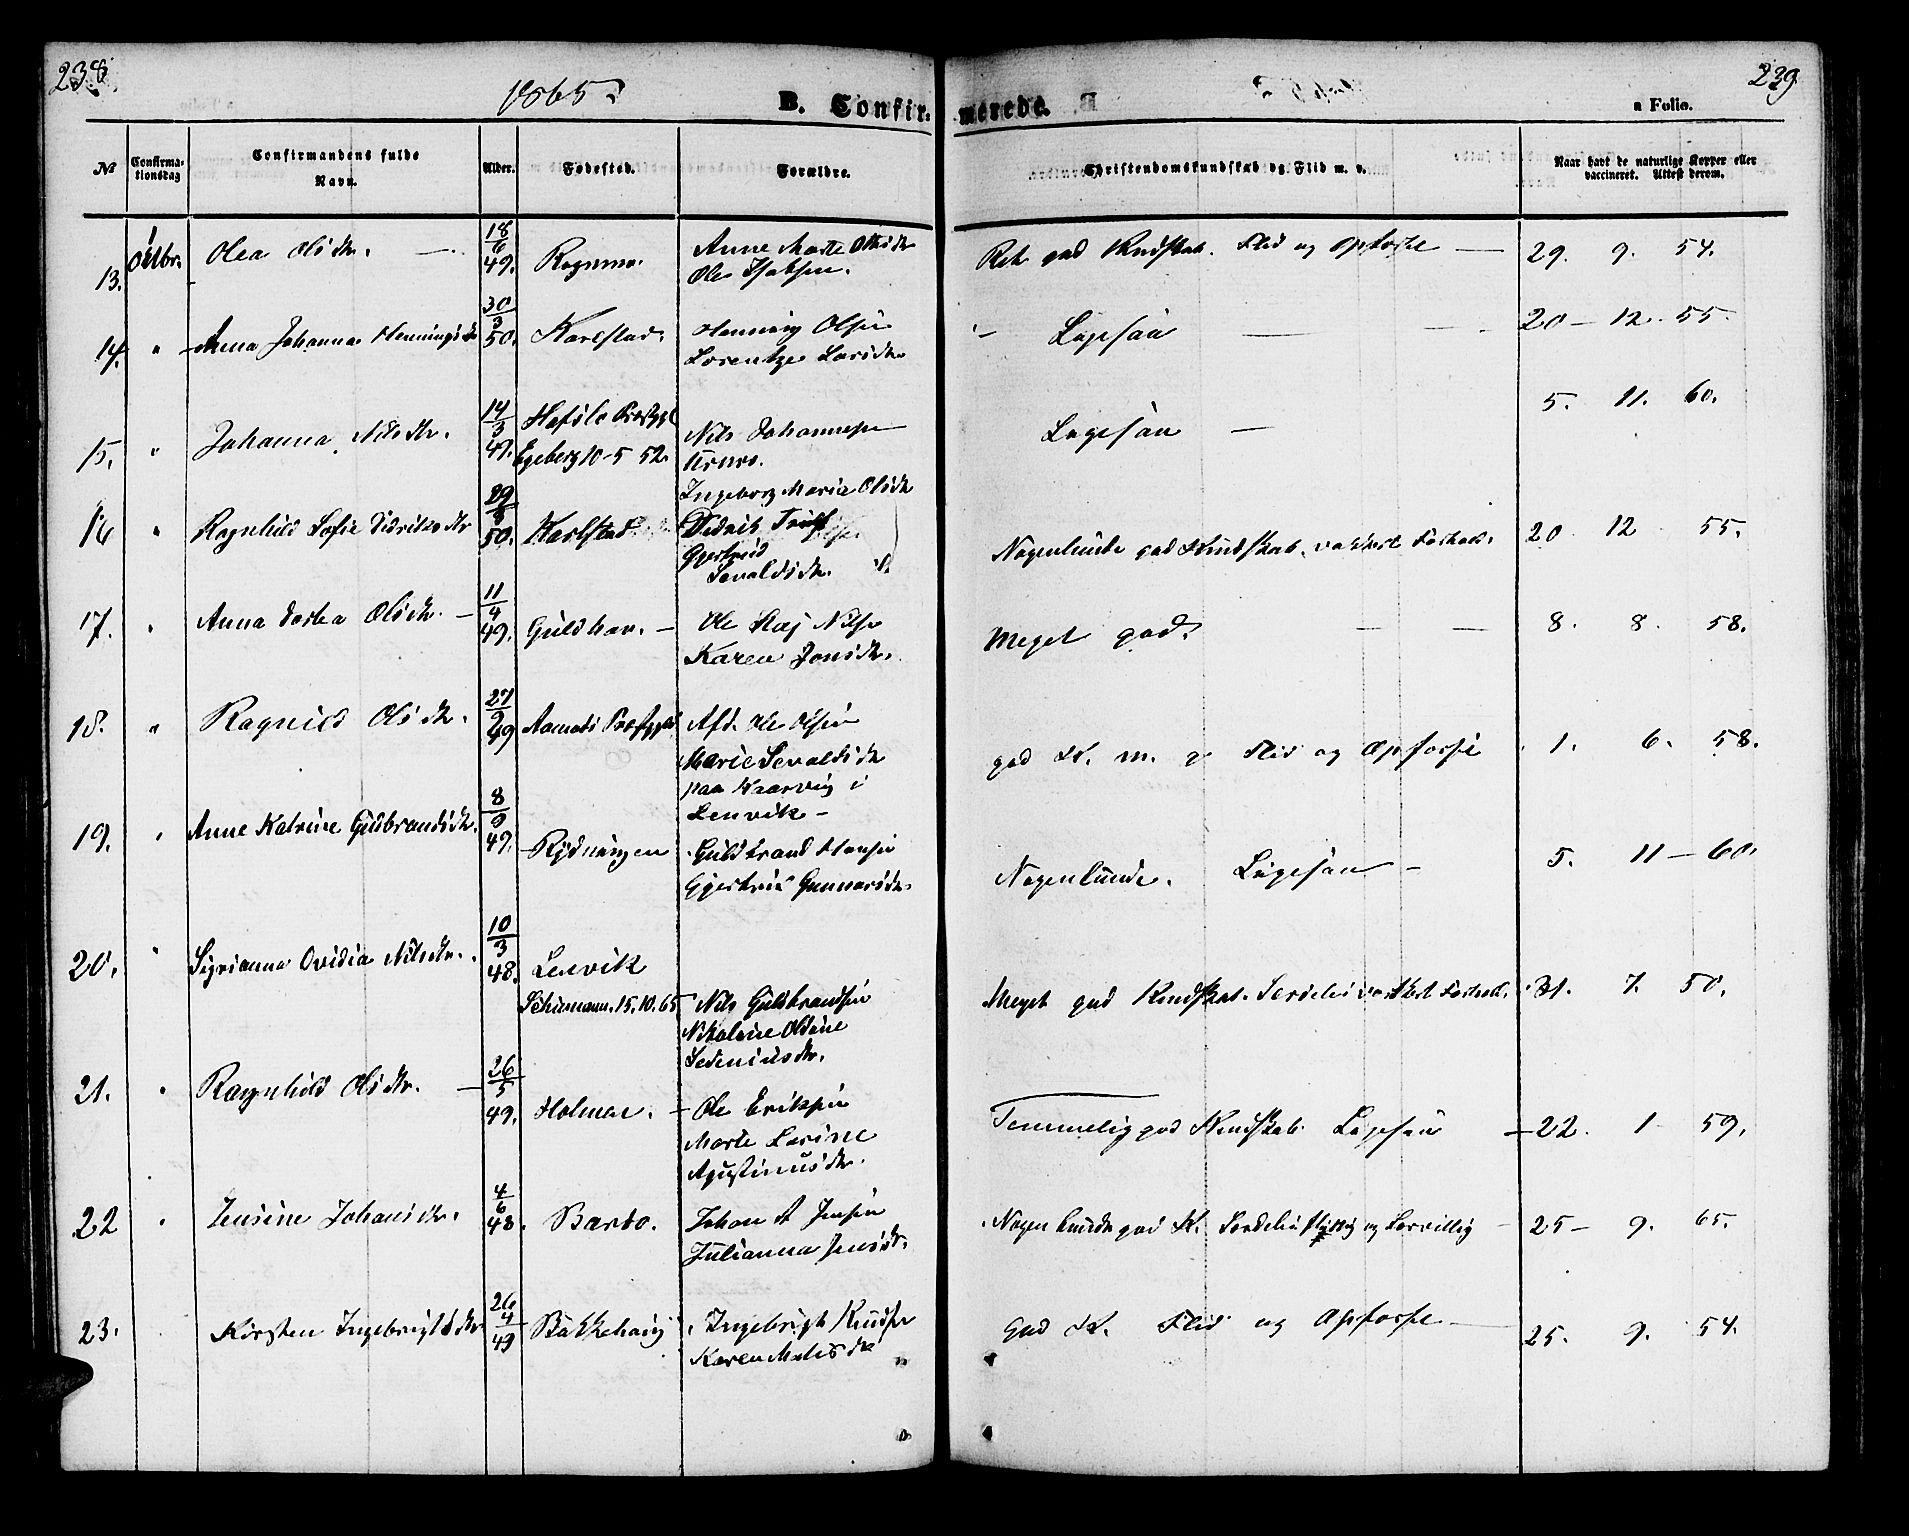 238
1865
B. Confirmerede.
a Folio.
239
№
Confirmationsdag
Confirmandens fulde Navn.
Alder.
Fødested.
Forældre.
Christendomskundskab og Flid m. v.
Naar havt de naturlige Kopper eller vaccineret. Attest derom.
13. 1 Octbr. Olea Olsdtr. — 18/6 49. Anne Marte Olsdtr
Ole Isaksen. Ret god Kundskab. Flid og Opførsel — 29. 9. 54.
14. " Anna Johanna Henningsdtr 30/3 50. Karlstad. Henning Olsen
Lorentze Larsdtr — Ligesaa — 20 — 12. 55.
15. " Johanna Nilsdtr. 14/3 49. Hafslo Præstgjd
Egeberg 10-5 52. Nils Johannesen
Ligesaa — 5. 11. 60.
Ingeborg Maria Olsdtr
16 " Ragnhild Sofie Didriksdtr 50. Karlstad Didrik
Gjertrud
Sevaldsdtr. Nogenlunde god Kundskab. vakkert Forhold. 20. 12 55.
17. " Anna Dortea Olsdtr. — 11/4 49. Guldhav. — Ole Nilsen
Karen Jonsdtr. Meget god. — — 8. 8. 58.
18. " Ragnild Olsdtr. 27/9 49 Aamots Præstgjd Afd. Ole Olsen
Marie Sevaldsdtr
paa Kaarvig i
Lenvik — god K. m. g Flid og Opførsel 1. 6. 58.
19. " Anne Katrine Guldbrandsdtr. 8/9 49. Rydningen Guldbrand Hansen
Gjertrud Gunnarsdtr. Nogenlunde. Ligesaa — 5. 11 — 60.
20. " Sigrianna Ovidia Nilsdtr. 10/3 48. Lenvik
Schumann. 15. 10. 65 Nils Guldbrandsen
Nikoline Oldine
Sedeniusdtr. Meget god Kundskab. Særdeles vakkert Forhold. 31. 7. 50.
21. " Ragnhild Olsdtr. — 26/5 49. Holmen. — Ole Eriksen
Marte Lorine
Agustinusdtr. Temmelig god Kundskab Ligesaa — 22. 1 59.
22 " Jensine Johansdtr. 4/6 48. Bardo. Johan A Jensen
Julianna Jensdtr. Nogenlunde god K. Særdeles flittig og Lærvillig — 25 — 9. 65.
23. Kirsten Ingebrigtsdtr 26/4 49 Bakkehaug Ingebrigt Knudsen
Karen Matisdtr God K. Flid og Opførsel — 25. 9. 54.